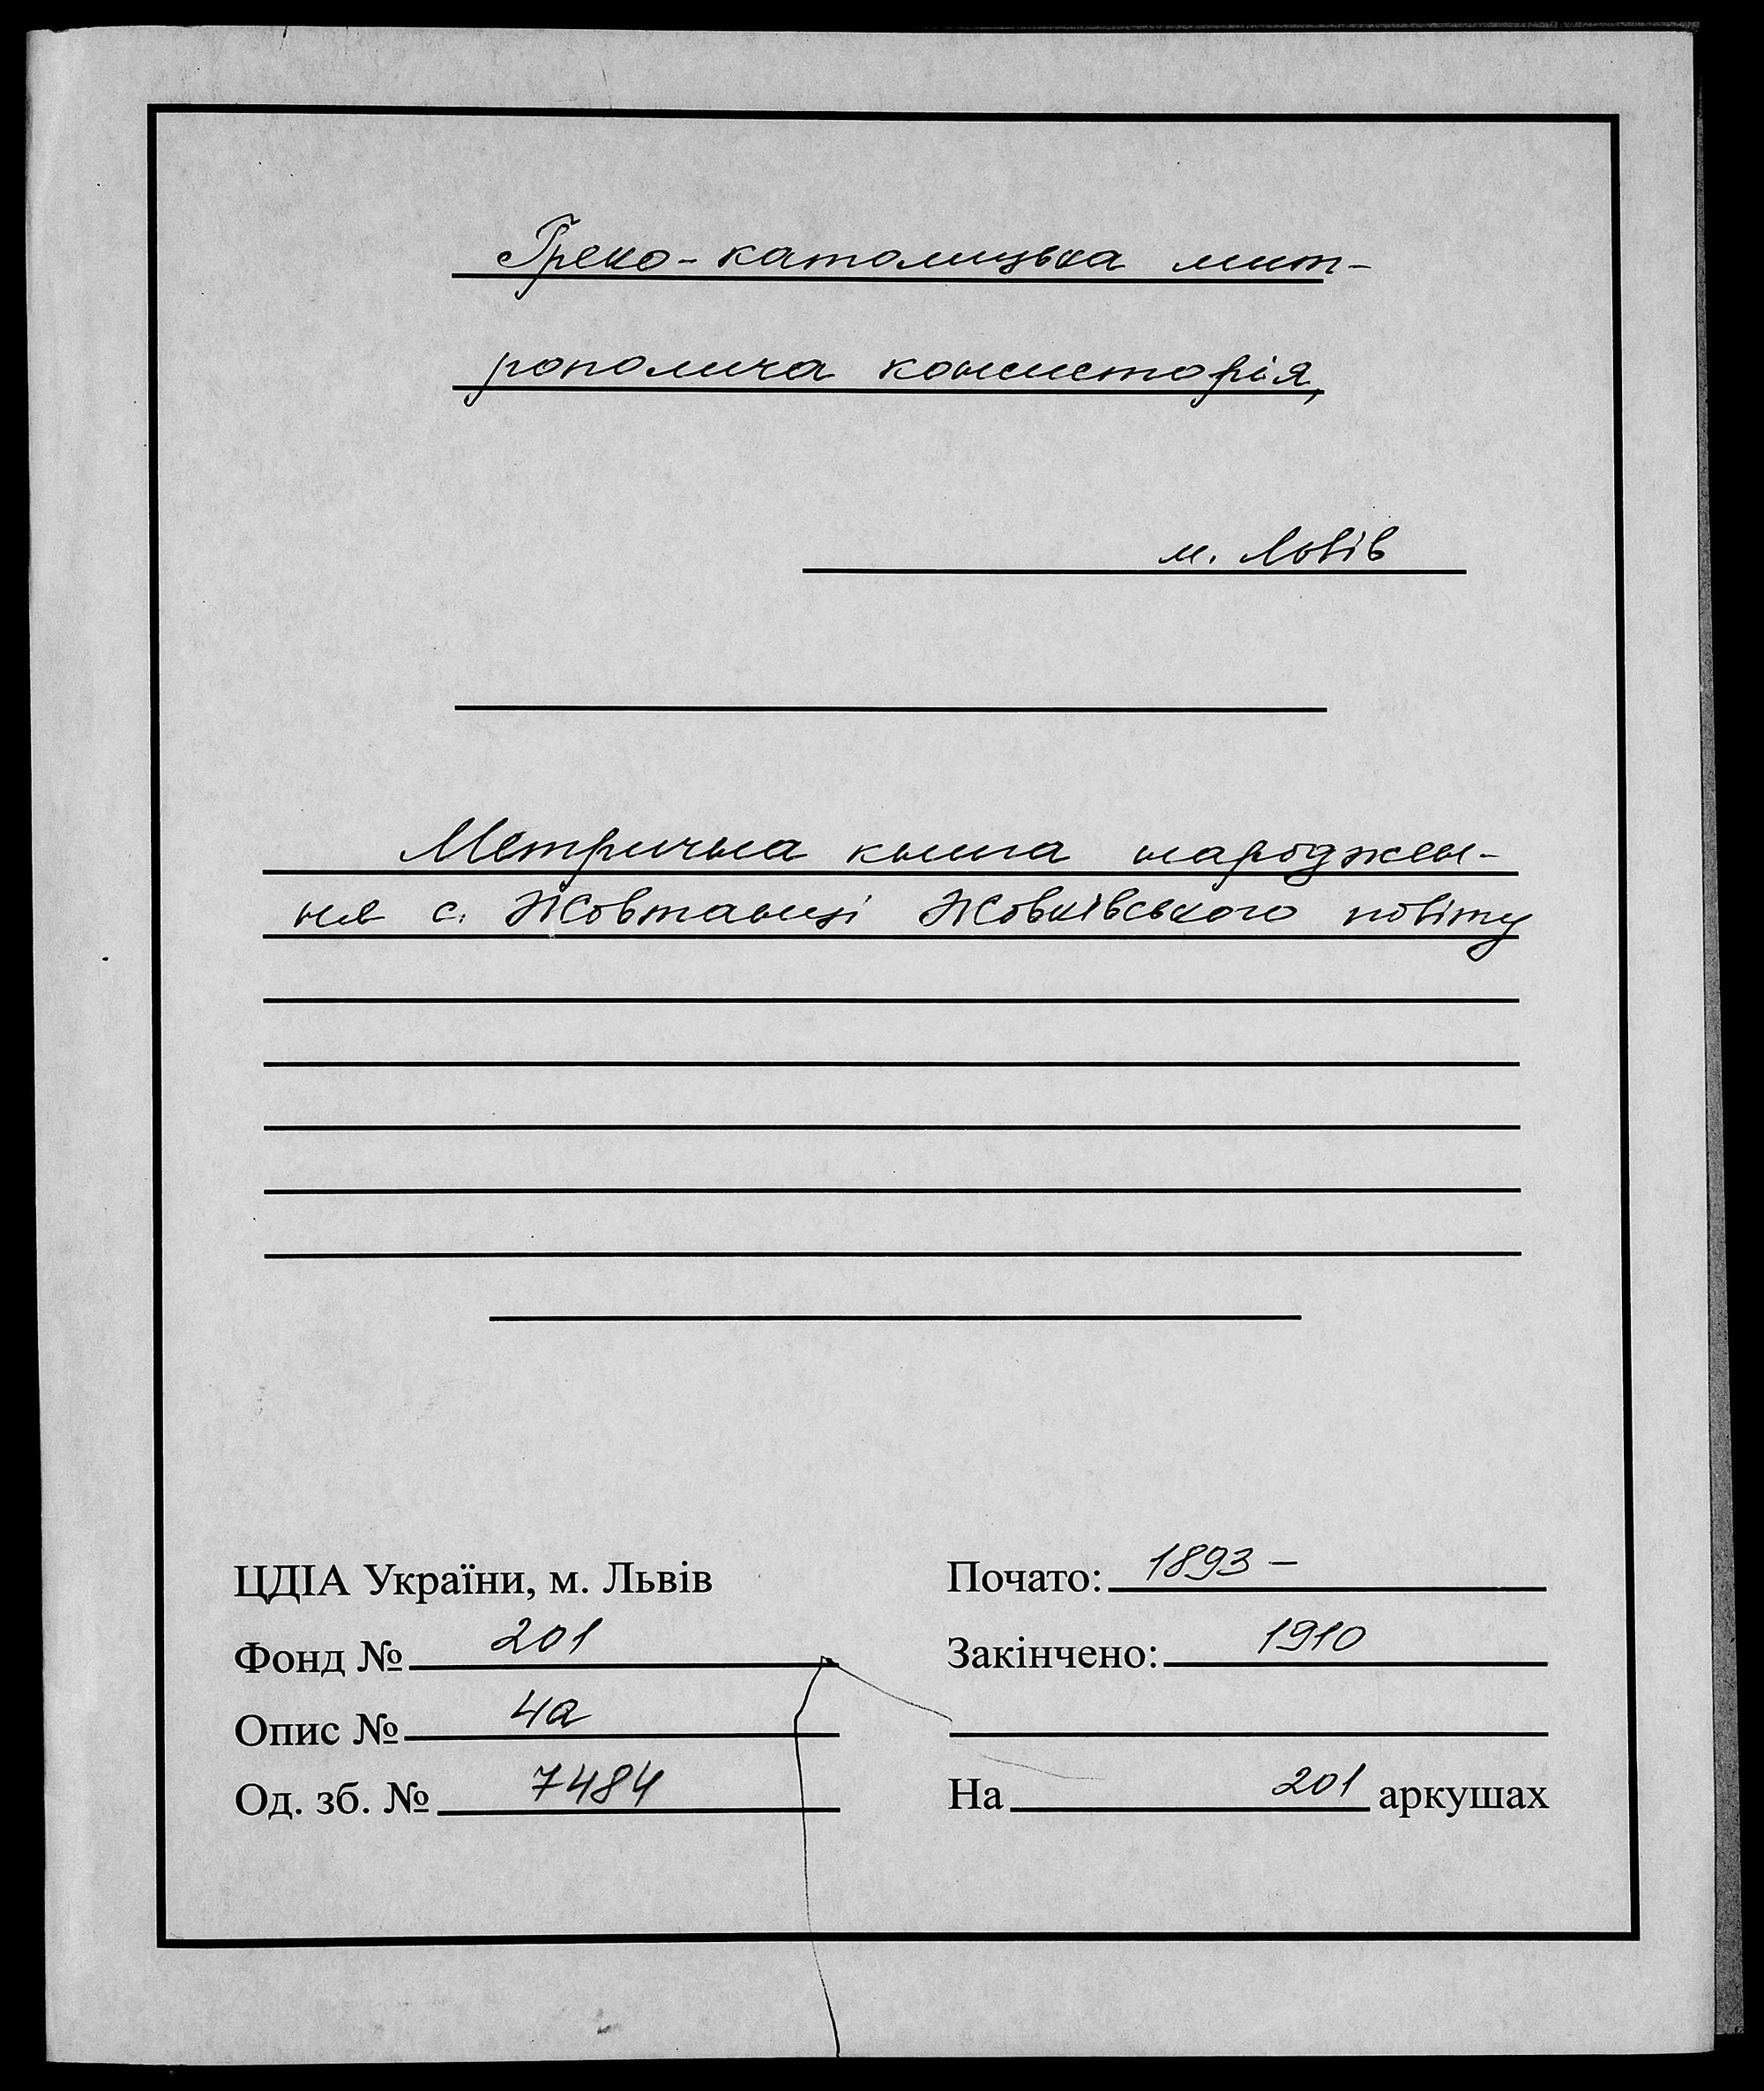 Греко-католицька мит-
рополича консисторія,
м. Львів
Метрична книга народжен-
ня с. Жовтанці Жовківського повіту
ЦДІА України, м. Львів
Фонд № 201
Опис № 4а
Од. зб. № 7484
Почато: 1893 –
Закінчено: 1910
На 201 аркушах